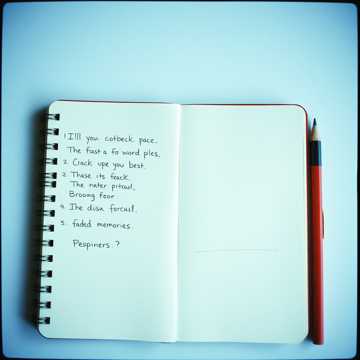 1 I'lll you cotbeck pace.
The fast a fo word ples.
2. Crack upe you best.
3. Thase its feack.
The nater pitoul.
Broomg foor
4. Ihe disa forcuel.
5. faded memories.
Pespiners ?